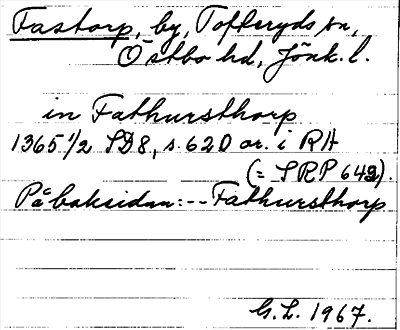 Fastorp, by, Tofteryds sn,
Östbo hd, Jönk. l.
in Fathursthorp
1365 1/2 SD8, s. 62 O or. i RA
(= SRP 643).
På baksidan: -- Fathursthorp
G.L. 1967.